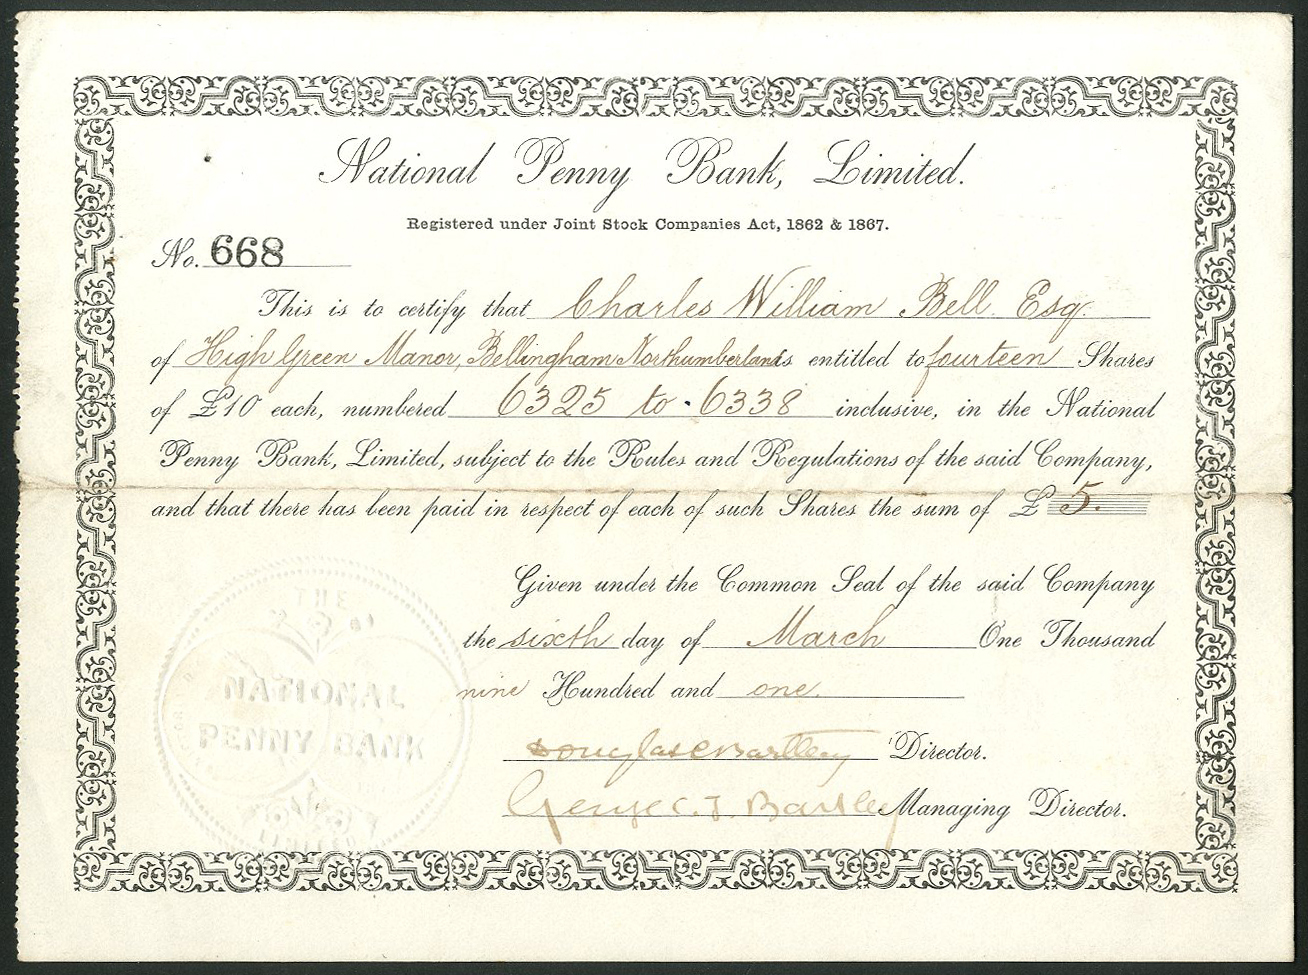 National Penny Bank, Limited.
Registered under Joint Stock Companies Act, 1862 & 1867.
No. 668
This is to certify that Charles William Bell Esq.
of High Green Manor, Bellingham Northumberland is entitled to fourteen Shares
of £10 each, numbered 6325 to 6338 inclusive, in the National
Penny Bank, Limited, subject to the Rules and Regulations of the said Company,
and that there has been paid in respect of each of such Shares the sum of £ 5.
Given under the Common Seal of the said Company
the sixth day of March One Thousand
nine Hundred and one.
Douglas C Bartley Director.
George C. T. Bartley Managing Director.
THE
NATIONAL
PENNY BANK
LIMITED